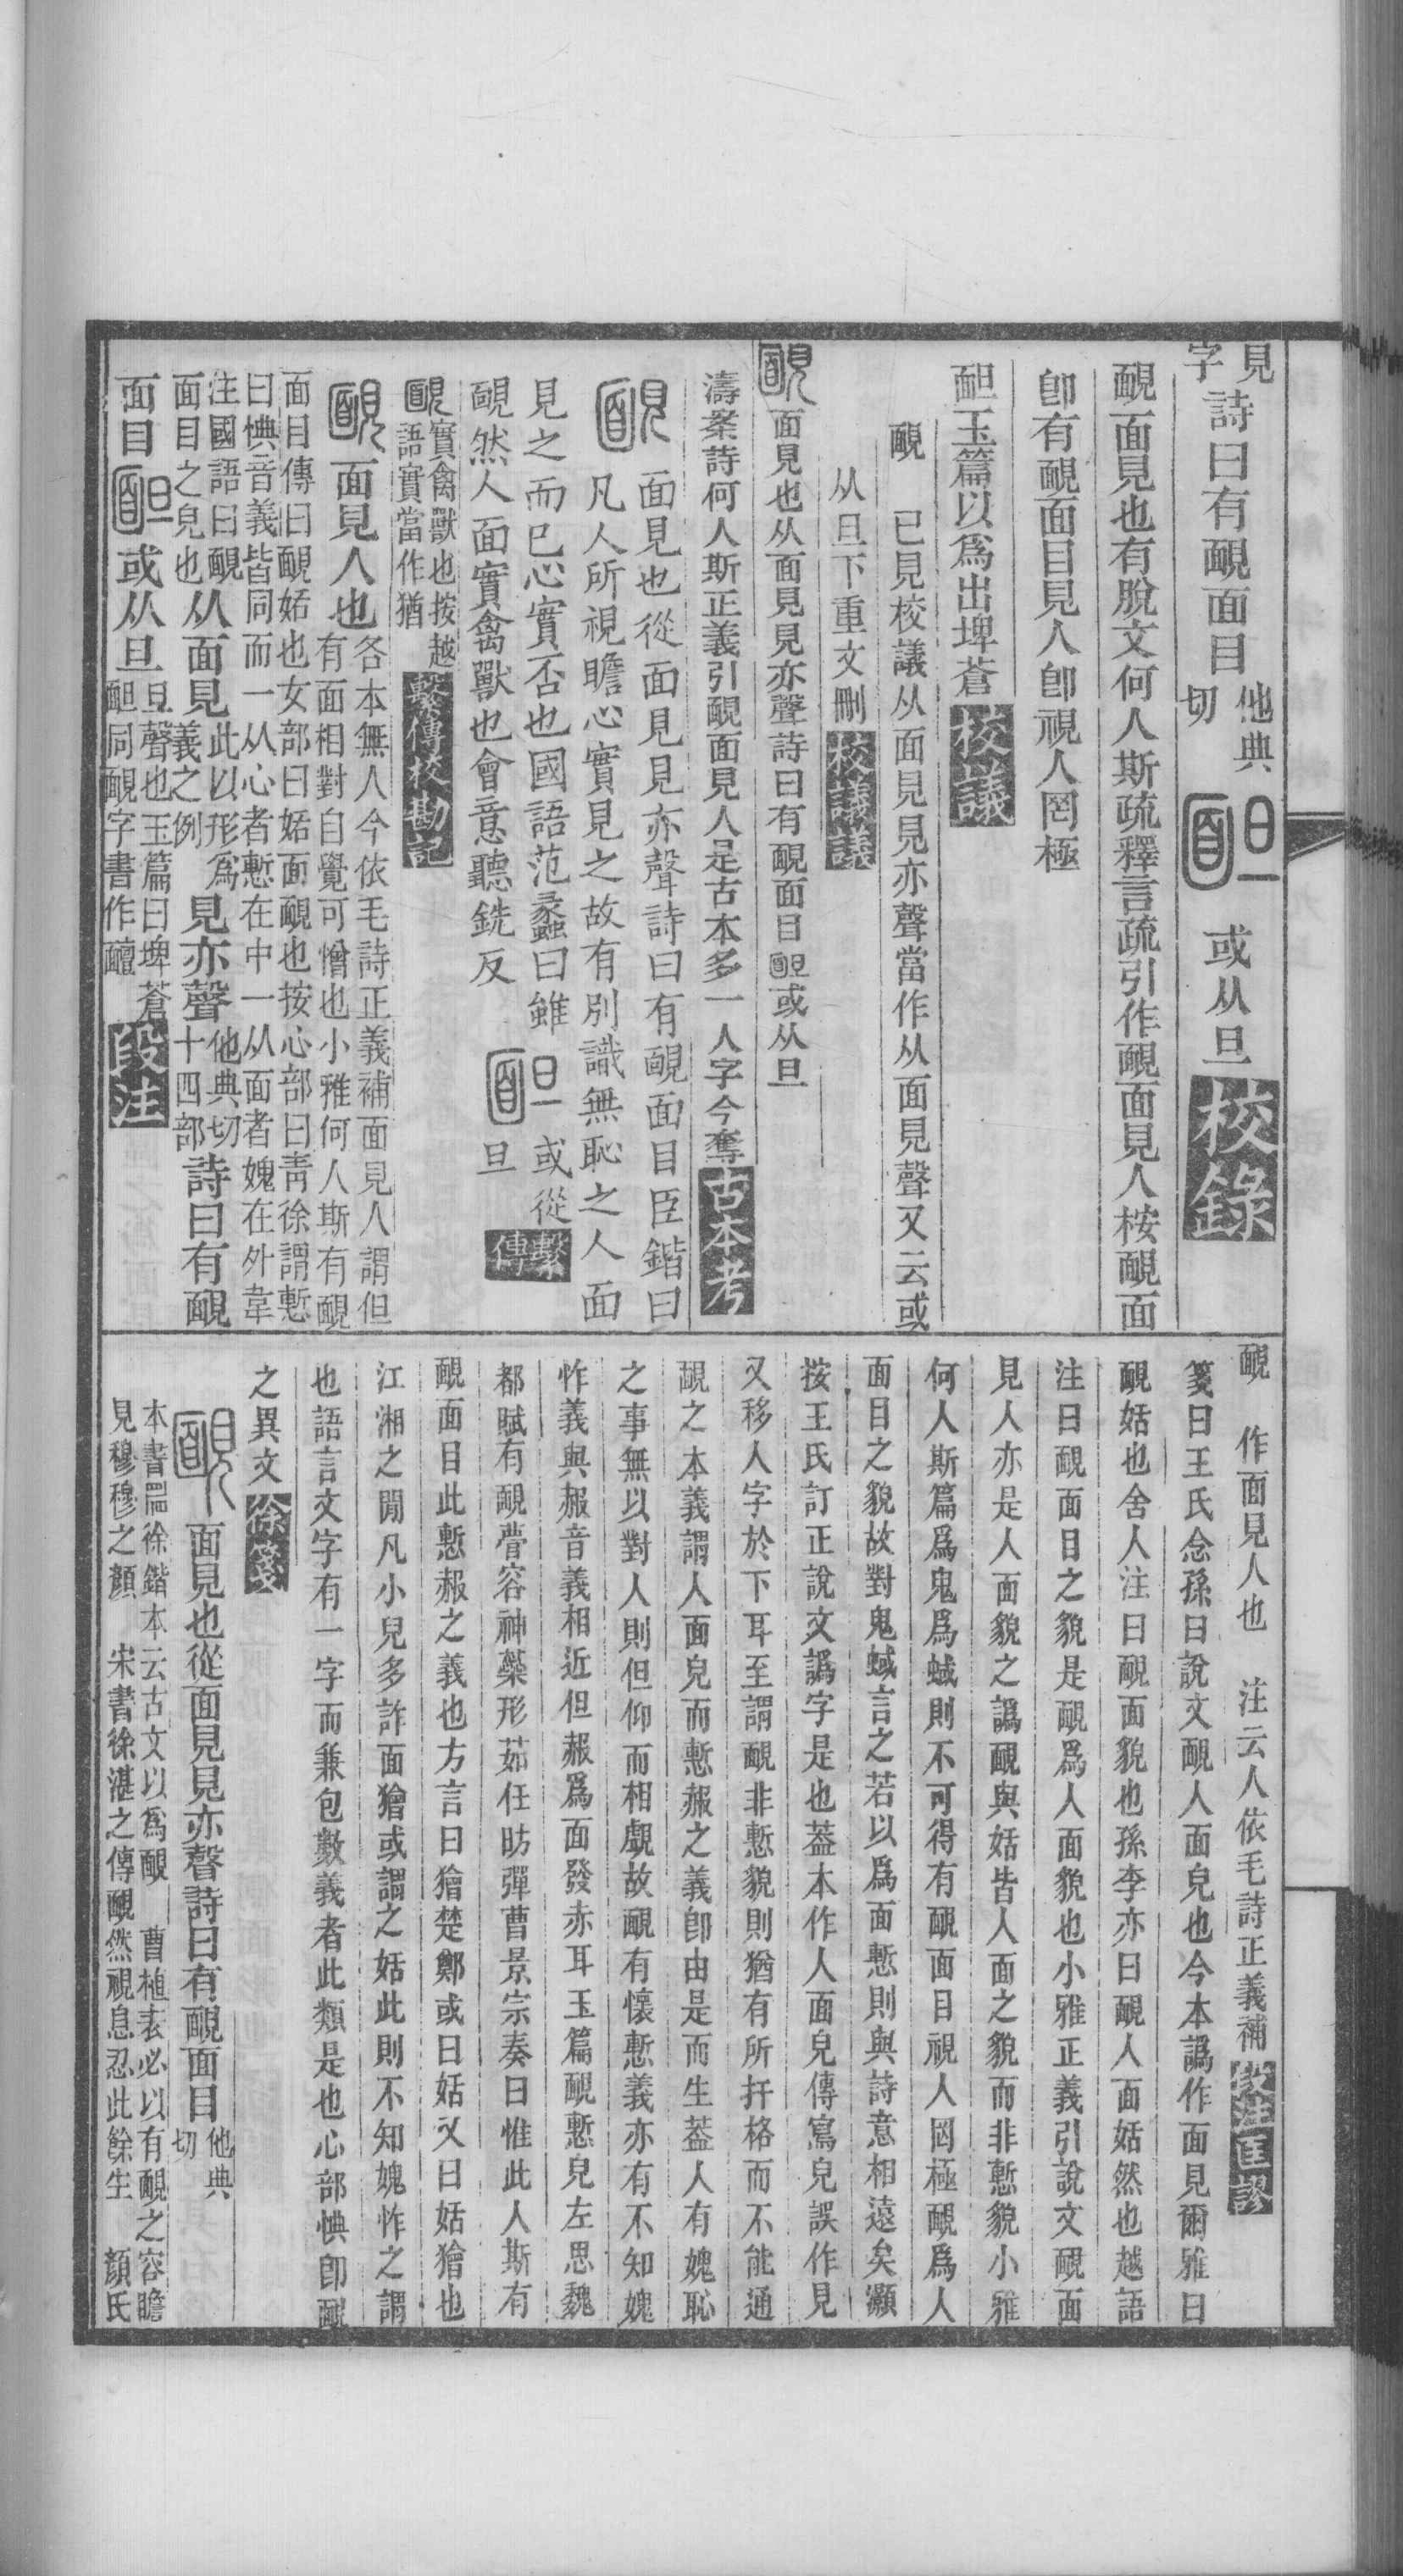 見字詩曰有靦面目他典切𩈧或从旦校錄
靦面見也有脫文何人斯疏釋言疏引作靦面見人桉靦面
卽有靦面目見人卽視人罔極
𩈧玉篇以爲出埤蒼校議
靦　已見校議从面見見亦聲當作从面見聲又云或
从旦下重文刪校議議
靦面見也从面見見亦聲詩曰有靦面目𩈧或从旦
濤桉詩何人斯正義引靦面見人是古本多一人字今奪古本考
靦面見也從面見見亦聲詩曰有靦面目臣鍇曰
凡人所視瞻心實見之故有別識無恥之人面
見之而已心實否也國語范蠡曰雖
靦然人面實禽獸也會意聽銑反𩈧或從旦繫傳
靦實禽獸也按越語實當作猶繫傳校勘記
靦面見人也各本無人今依毛詩正義補面見人謂但
有面相對自覺可憎也小雅何人斯有靦
面目傳曰靦姡也女部曰姡面靦也按心部曰青徐謂慙
曰㥏音義皆同而一从心者慙在中一从面者媿在外韋
注國語曰靦面目之皃也从面見此以形爲義之例見亦聲他典切十四部詩曰有靦
面目𩈧或从旦旦聲也玉篇曰埤蒼𩈧同靦字書作䩤段注
靦　作面見人也　注云人依毛詩正義補段注匡謬
箋曰王氏念孫曰說文靦人面皃也今本譌作面見爾雅曰
靦姡也舍人注曰靦面貌也孫李亦曰靦人面姡然也越語
注曰靦面目之貌是靦爲人面貌也小雅正義引說文靦面
見人亦是人面貌之譌靦與姡皆人面之貌而非慙貌小雅
何人斯篇爲鬼爲蜮則不可得有靦面目視人罔極靦爲人
面目之貌故對鬼蜮言之若以爲面慙則與詩意相遠矣灝
按王氏訂正說文譌字是也葢本作人面皃傳寫皃誤作見
又移人字於下耳至謂靦非慙貌則猶有所扞格而不能通
靦之本義謂人面皃而慙赧之義卽由是而生葢人有媿恥
之事無以對人則但仰而相覷故靦有懷慙義亦有不知媿
怍義與赧音義相近但赧爲面發赤耳玉篇靦慙皃左思魏
都賦有靦瞢容神蘂形茹任昉彈曹景宗奏曰惟此人斯有
靦面目此慙赧之義也方言曰獪楚鄭或曰姡又曰姡獪也
江湘之閒凡小兒多詐面獪或謂之姡此則不知媿怍之謂
也語言文字有一字而兼包數義者此類是也心部㥏卽靦
之異文徐箋
靦面見也從面見見亦聲詩曰有靦面目他典切
本書徐鍇本云古文以爲靦　曹植表必以有靦之容瞻
見穆穆之顏　宋書徐湛之傳靦然視息忍此餘生　顏氏